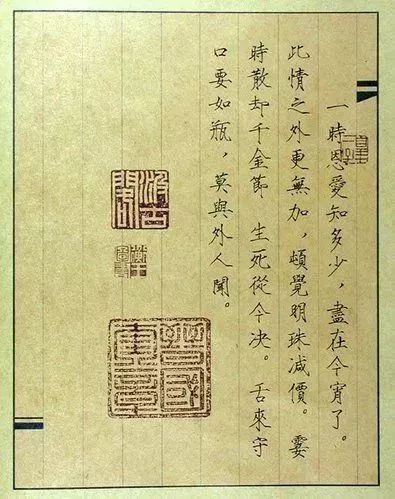 一時恩愛知多少，盡在今宵了。
此情之外更無加，頓覺明珠減價。霎
時散却千金節 生死從今决。舌來守
口要如瓶，莫與外人聞。
汲古閣